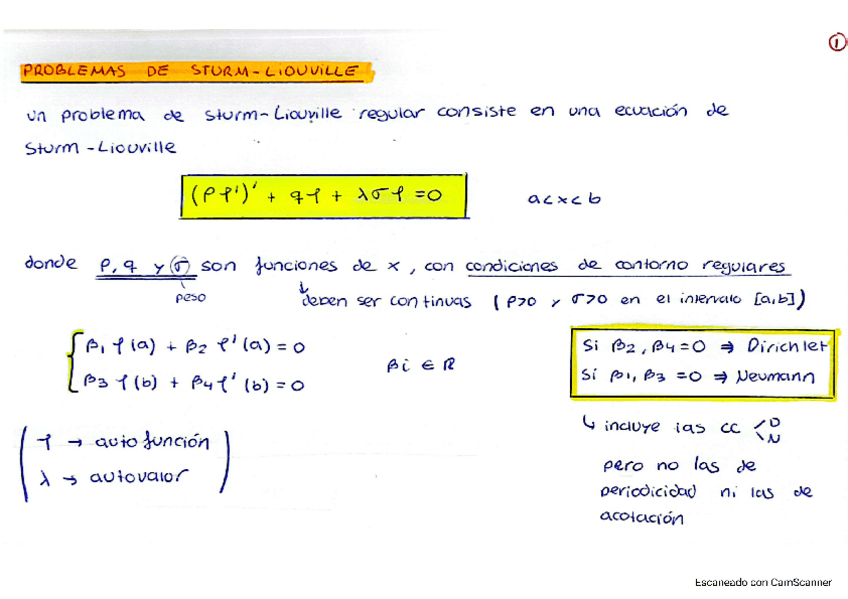 1
PROBLEMAS DE STURM-LIOUVILLE
un problema de Sturm-Liouville regular consiste en una ecuación de
Sturm-Liouville
(pφ')' + qφ + λσφ = 0    a<x<b
donde p, q y σ son funciones de x, con condiciones de contorno regulares
peso
↳ deben ser continuas (p>0 y σ>0 en el intervalo [a,b])
β₁φ(a) + β₂φ'(a) = 0
β₃φ(b) + β₄φ'(b) = 0
βi ∈ ℝ
Si β₂, β₄ = 0 ⇒ Dirichlet
Si β₁, β₃ = 0 ⇒ Neumann
↳ incluye las CC < D N
pero no las de
periodicidad ni las de
acotación
φ → autofunción
λ → autovalor
Escaneado con CamScanner